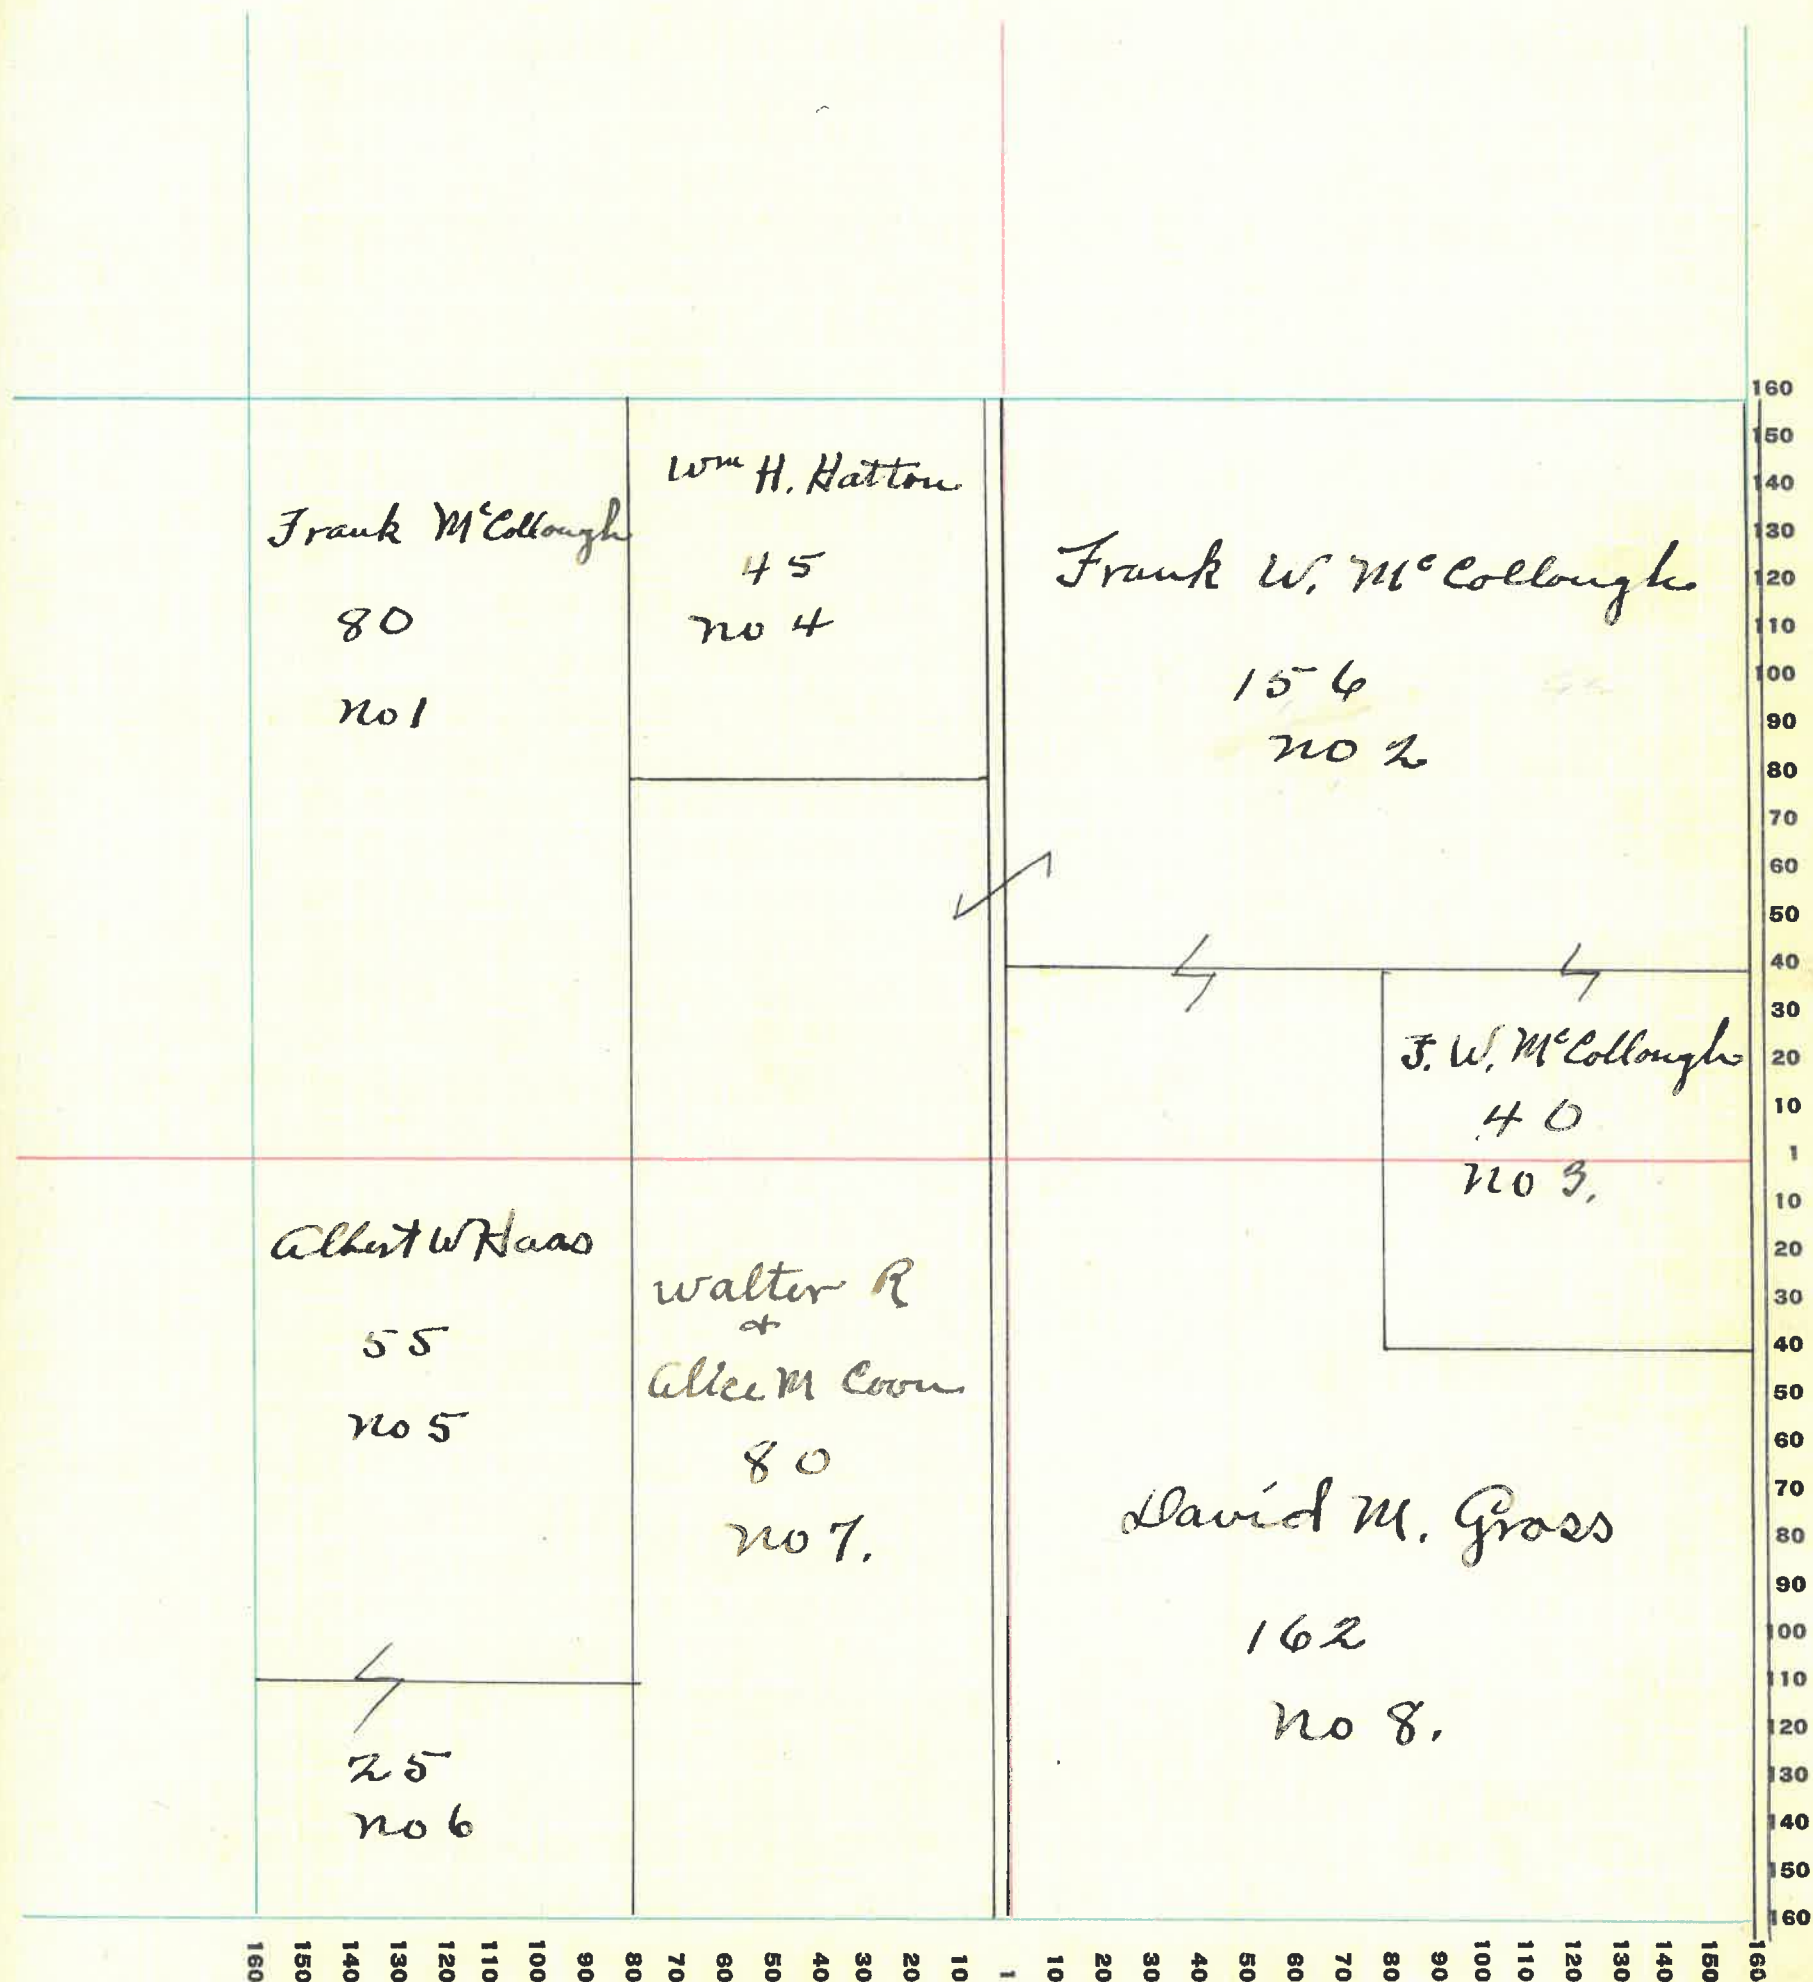 Frank McCollough
80
no 1
Wm H. Hatton
45
no 4
Frank W. McCollough
156
no 2
F. W. McCollough
40
no 3.
Albert W Haas
55
no 5
25
no 6
Walter R
+
Alice M Coon
80
no 7.
David M. Gross
162
no 8.
160
150
140
130
120
110
100
90
80
70
60
50
40
30
20
10
1
10
20
30
40
50
60
70
80
90
100
110
120
130
140
150
160
160 150 140 130 120 110 100 90 80 70 60 50 40 30 20 10 1 10 20 30 40 50 60 70 80 90 100 110 120 130 140 150 160